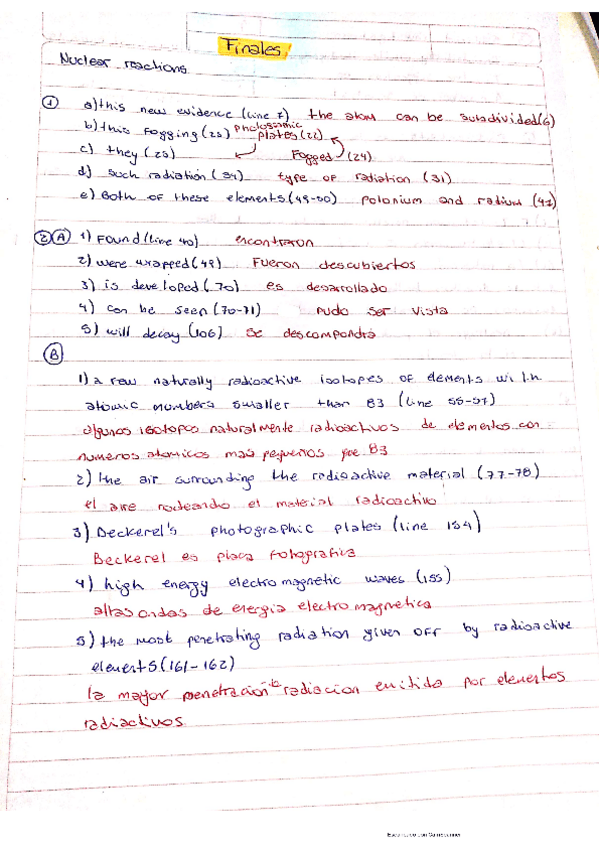 Finales
Nuclear reactions
① a) this new evidence (line 7) the atom can be subdivided (6)
b) this fogging (23) photographic plates (22)
c) they (25) Fogged (24)
d) such radiation (34) type of radiation (31)
e) Both of these elements (49-50) polonium and radium (47)
② Ⓐ 1) Found (line 40) encontraron
2) were wrapped (49) Fueron descubiertos
3) is developed (70) es desarollado
4) can be seen (70-71) pudo ser vista
5) will decay (106) se descompondrá
Ⓑ
1) a few naturally radioactive isotopes of elements with
atomic numbers smaller than 83 (line 55-57)
algunos isotopos naturalmente radioactivos de elementos con
numeros atomicos mas pequeños que 83
2) the air surrounding the radioactive material (77-78)
el aire rodeando el material radioactivo
3) Beckerel's photographic plates (line 154)
Beckerel es placa fotografica
4) high energy electro magnetic waves (155)
altas ondas de energia electro magnetica
5) the most penetrating radiation given off by radioactive
elements (161-162)
la mayor penetracion radiacion emitida por elementos
radiactivos
Escaneado con CamScanner